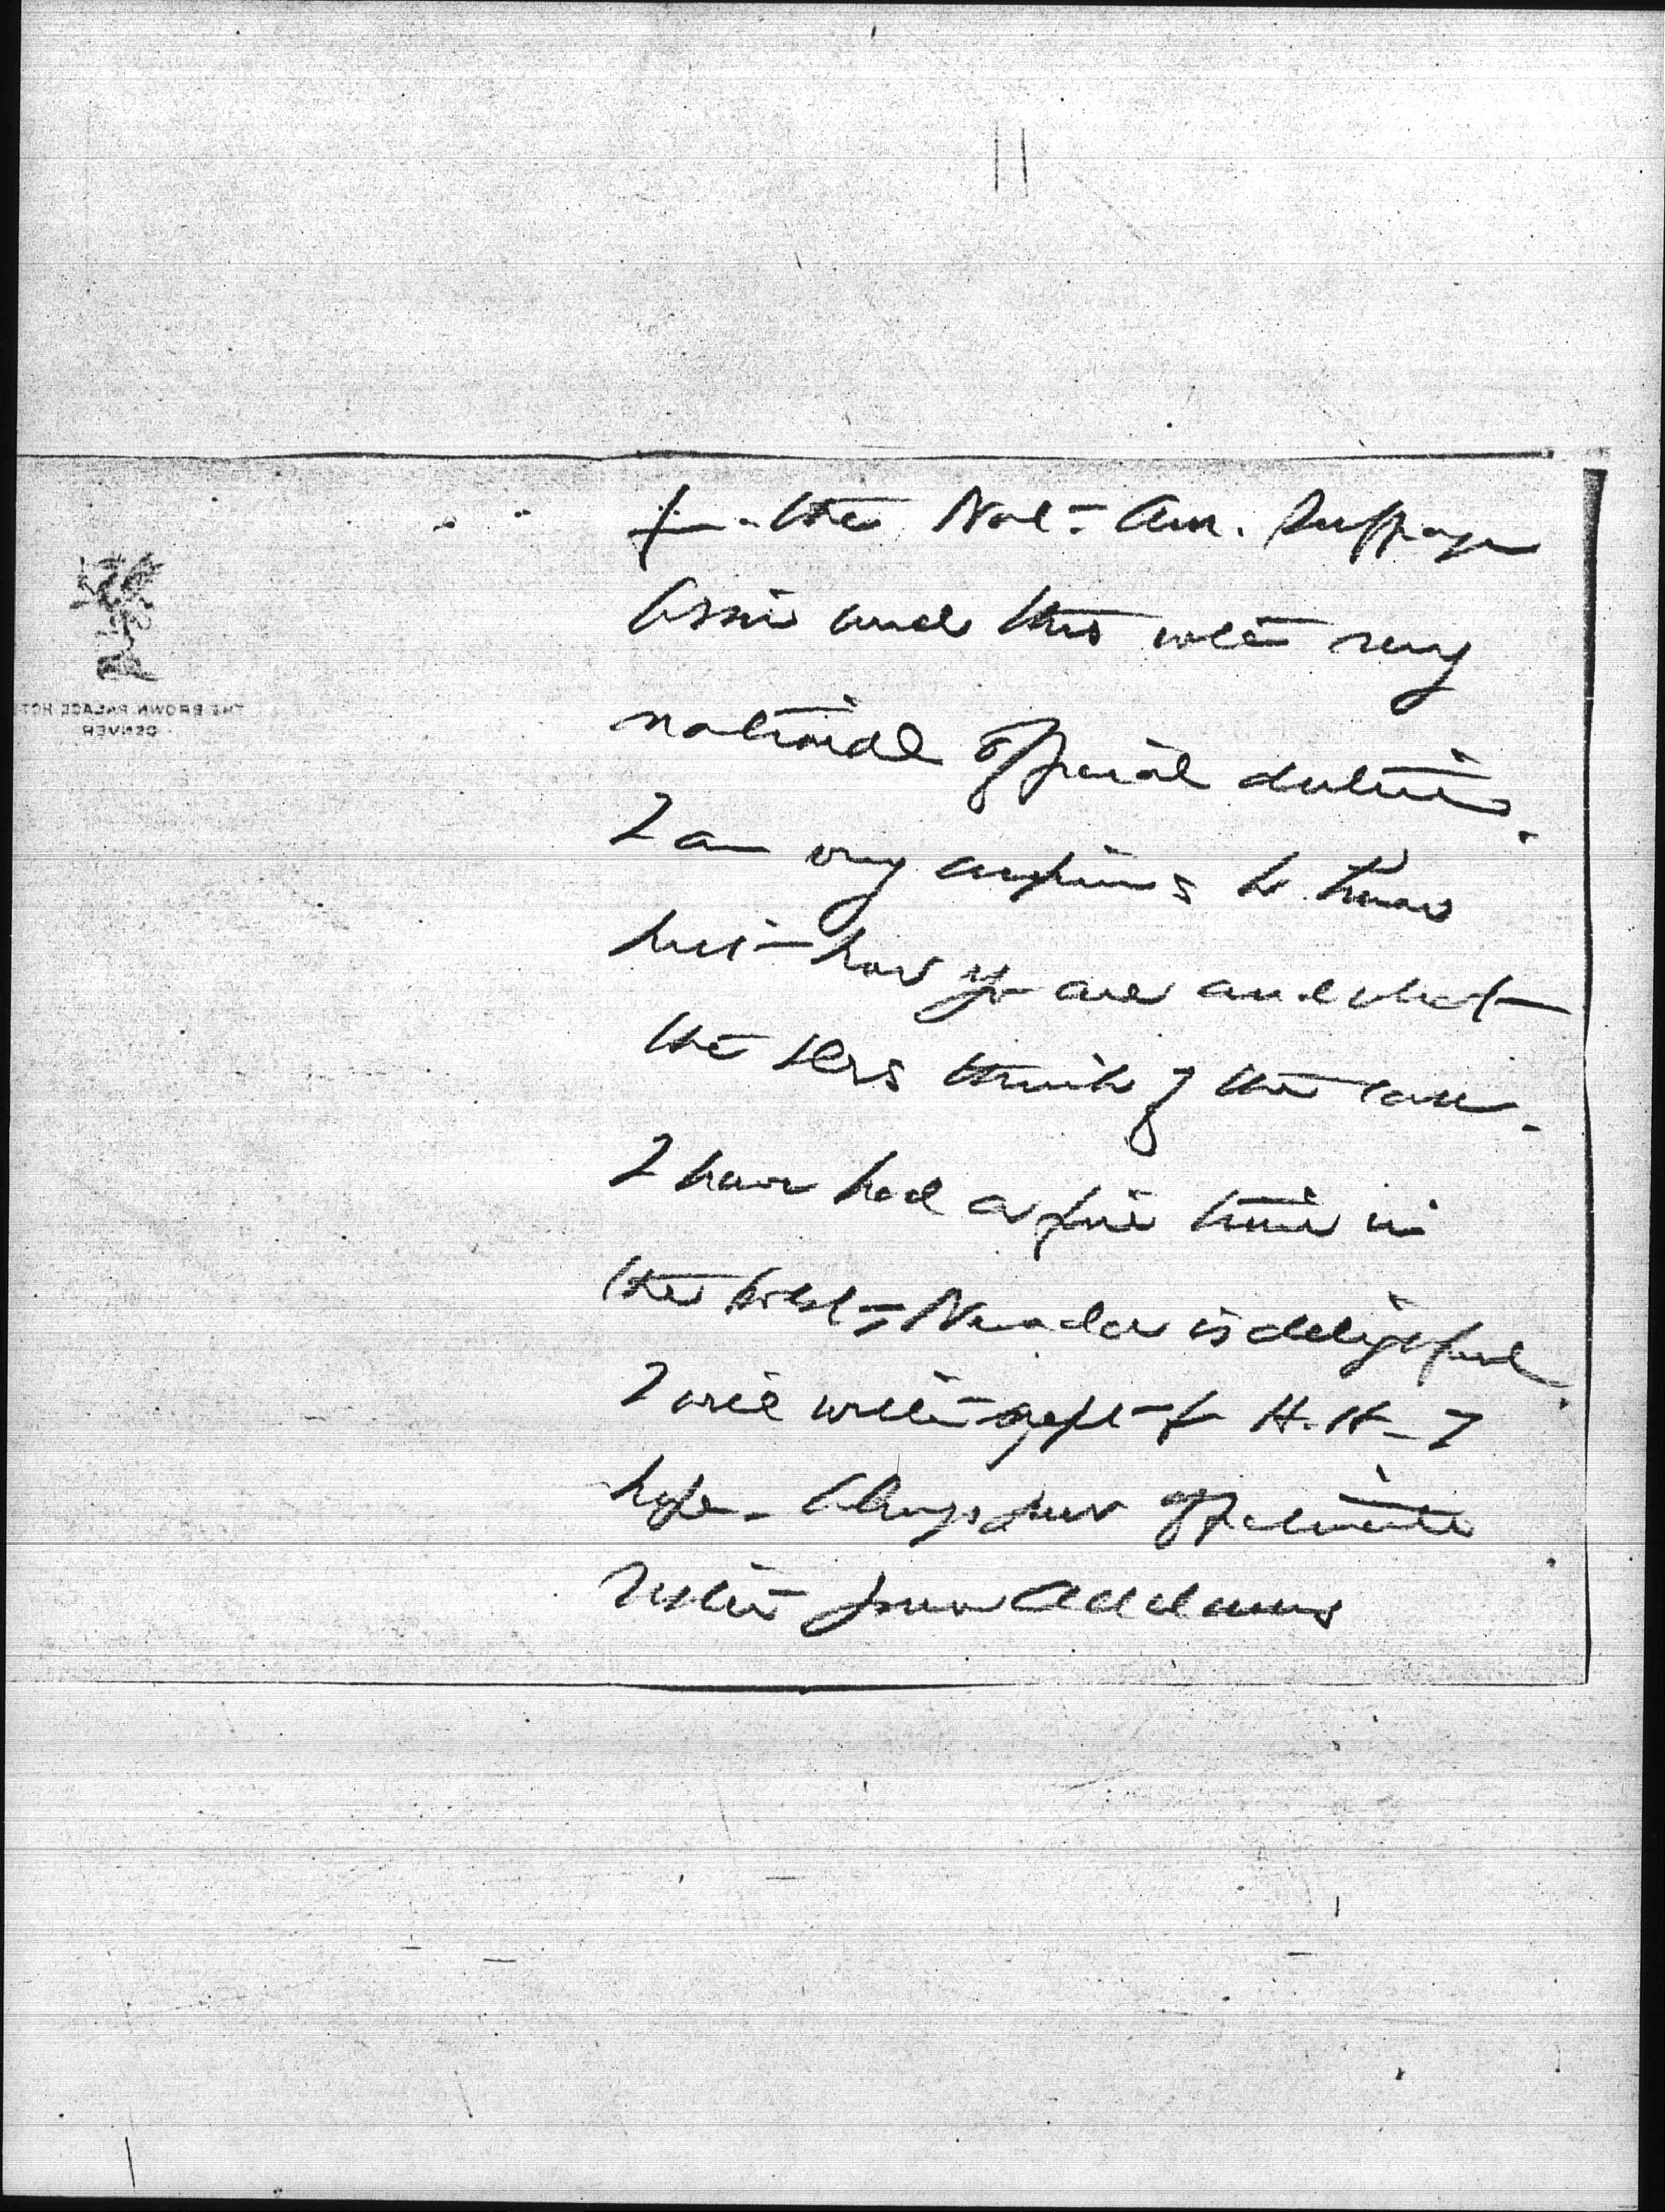 for the Nat- Am. Suffrage
Assn and this with my
national official duties.
I am very anxious to know
just how you are and what
the Drs think of the case.
I have had a fine time in
the West – Nevada is delightful.
I will write again from H. H. – I
hope. Always your affectionate
Sister Jane Addams
THE BROWN PALACE HOTEL
DENVER